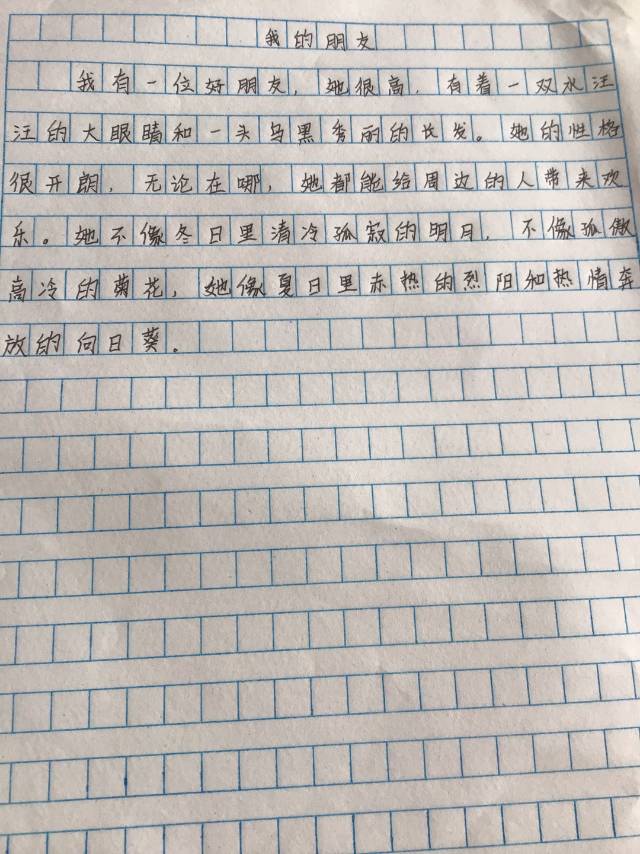 我的朋友
我有一位好朋友，她很高，有着一双水汪
汪的大眼睛和一头乌黑秀丽的长发。她的性格
很开朗，无论在哪，她都能给周边的人带来欢
乐。她不像冬日里清冷孤寂的明月，不像孤傲
高冷的菊花，她像夏日里赤热的烈阳和热情奔
放的向日葵。